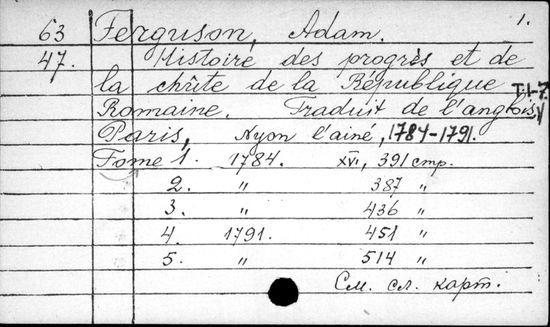 1.
63 Ferguson, Adam.
47. Histoire des progrès et de
la chûte de la République
Romaine. Traduit de l'anglois, T.1-7
Paris, Nyon l'ainé, 1784-1791.
Tome 1. 1784. XVI, 391 стр.
2. " 387 "
3. " 436 "
4. 1791. 451 "
5. " 514 "
См. сл. карт.